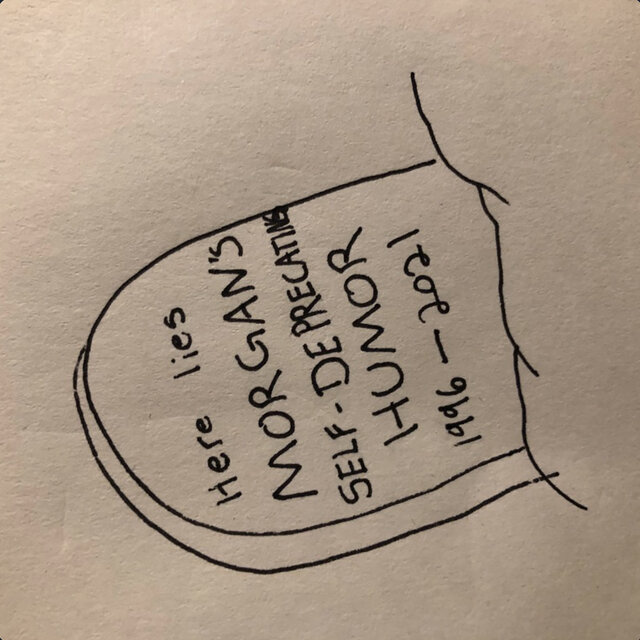 Here lies
MORGAN'S
SELF-DEPRECATING
HUMOR
1996-2021